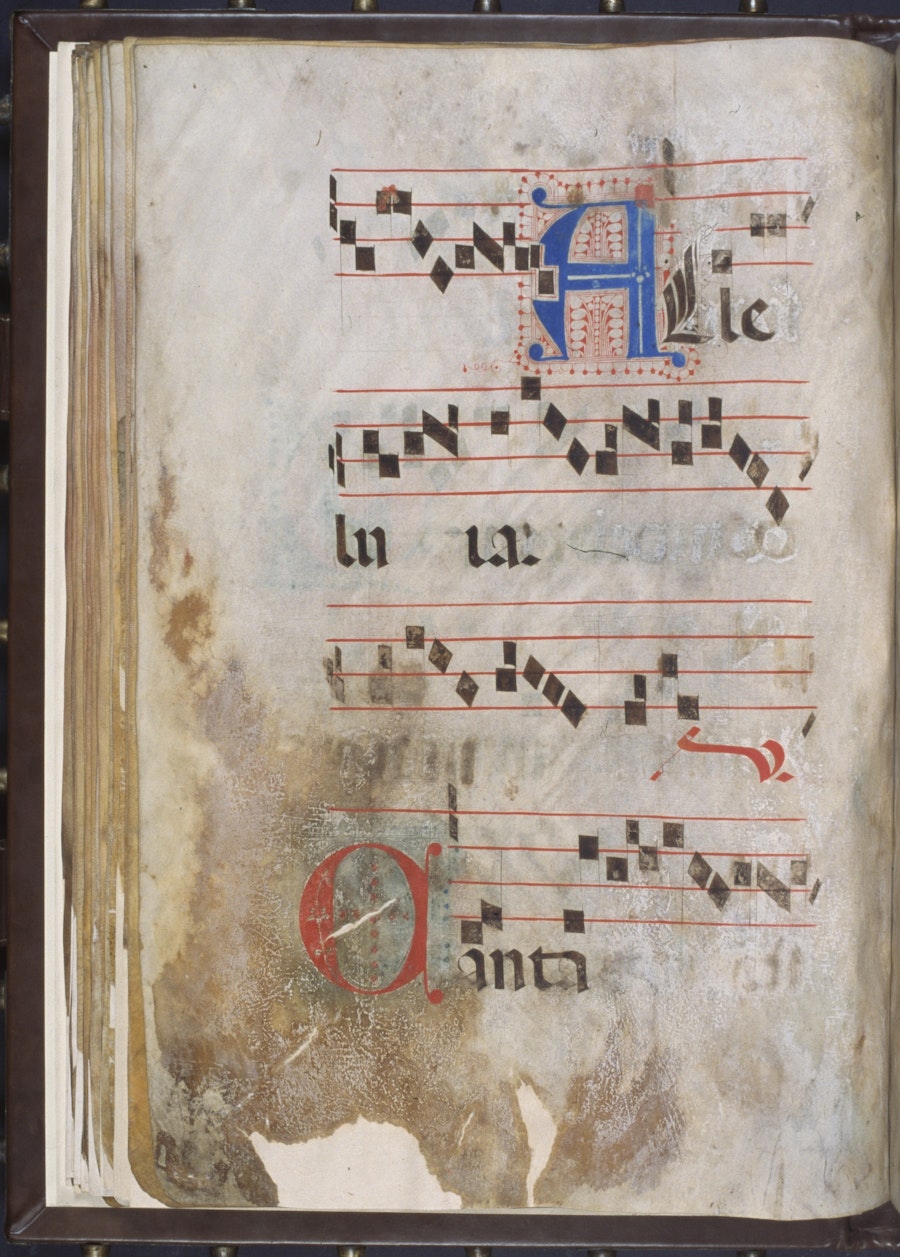 Alle
lu ia.
V.
Canta